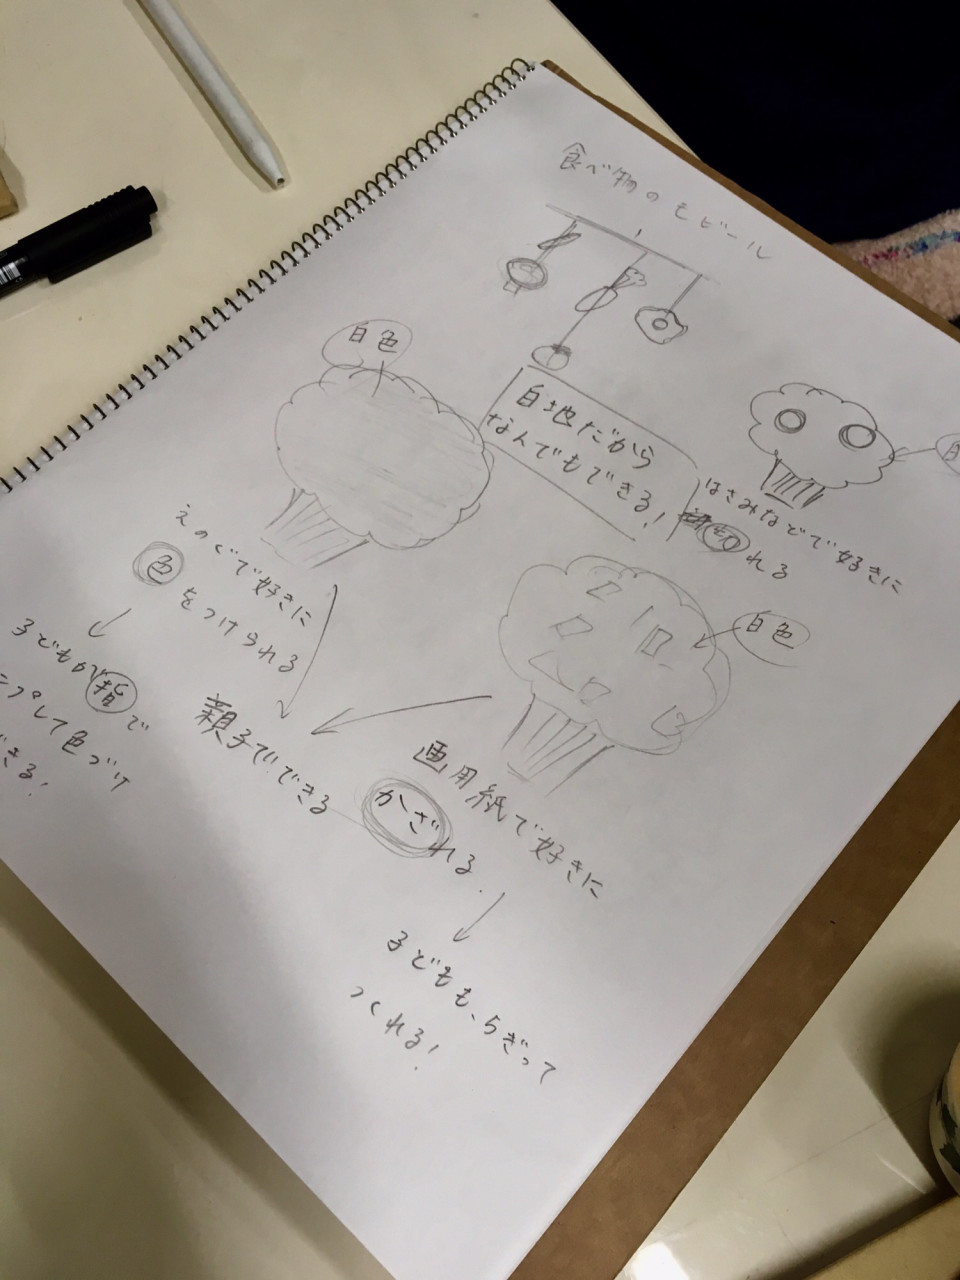 食べ物のモビール
白色
白地だから
なんでもできる!
はさみなどで好きに
切れる
えのぐで好きに
色をつけられる
子どもが指で
して色づけ
きる!
白色
親子でできる
画用紙で好きに
かざれる.
子どもも、ちぎって
つくれる!